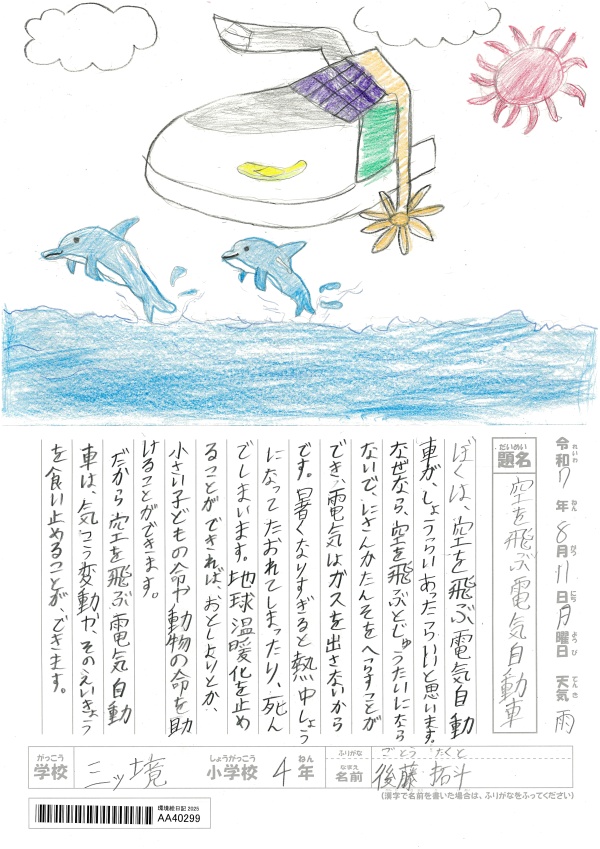 令和7年8月11日月曜日 天気 雨
れいわ ねん がつ にち ようび てんき
だいめい
題名 空を飛ぶ電気自動車
ぼくは、空を飛ぶ電気自動
車が、しょうらいあったらいいと思います。
なぜなら、空を飛ぶとじゅうたいになら
ないで、にさんかたんそをへらすことが
でき、電気はガスを出さないから
です。暑くなりすぎると熱中しょう
になってたおれてしまったり、死ん
でしまいます。地球温暖化を止め
ることができれば、おとしよりとか、
小さい子どもの命や動物の命を助
けることができます。
だから空を飛ぶ電気自動
車は、気こう変動や、そのえいきょう
を食い止めることが、できます。
がっこう しょうがっこう ねん ふりがな ごとう たくと
学校 三ッ境 小学校 4年 なまえ 名前 後藤 拓斗
(漢字で名前を書いた場合は、ふりがなをふってください)
環境絵日記 2025
AA40299